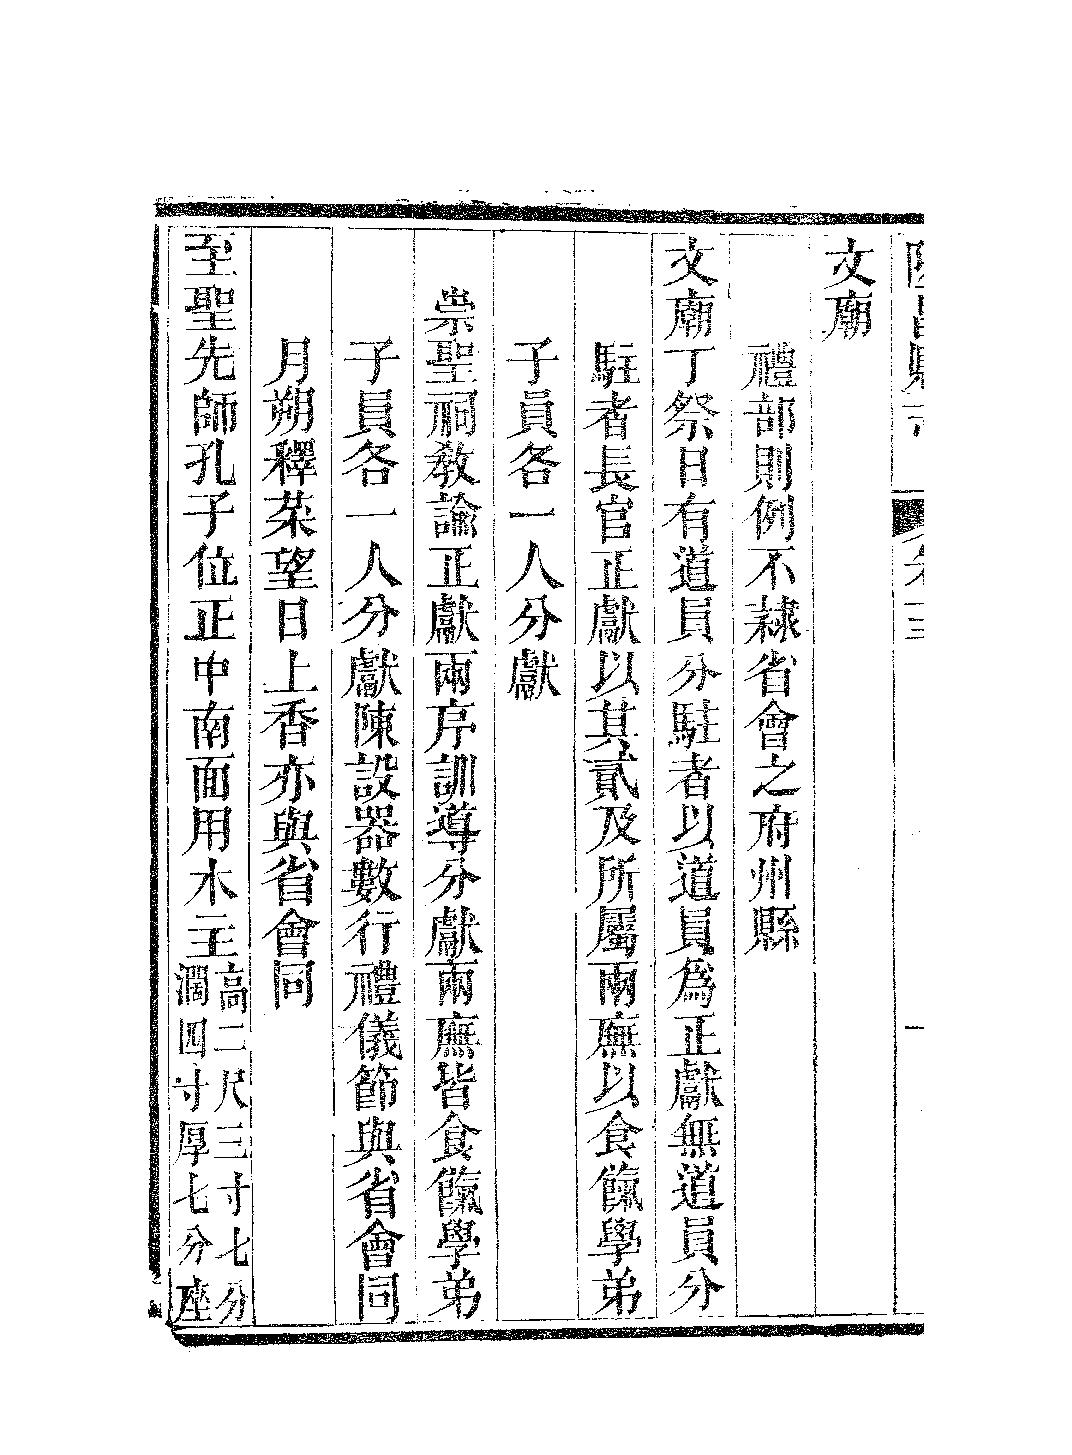 文廟
禮部則例不隸省會之府州縣
文廟丁祭日有道員分駐者以道員為正獻無道員分
駐者長官正獻以其貳及所屬兩廡以食餼學弟
子員各一人分獻
崇聖祠教諭正獻兩序訓導分獻兩廡皆食餼學弟
子員各一人分獻陳設器數行禮儀節與省會同
月朔釋菜望日上香亦與省會同
至聖先師孔子位正中南面用木主
高二尺三寸七分
濶四寸厚七分座